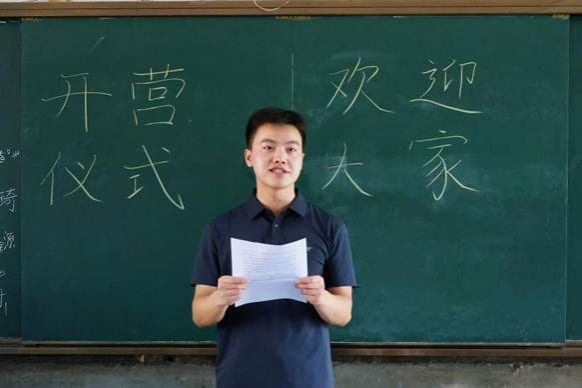 开营 欢迎
仪式 大家
琦
源